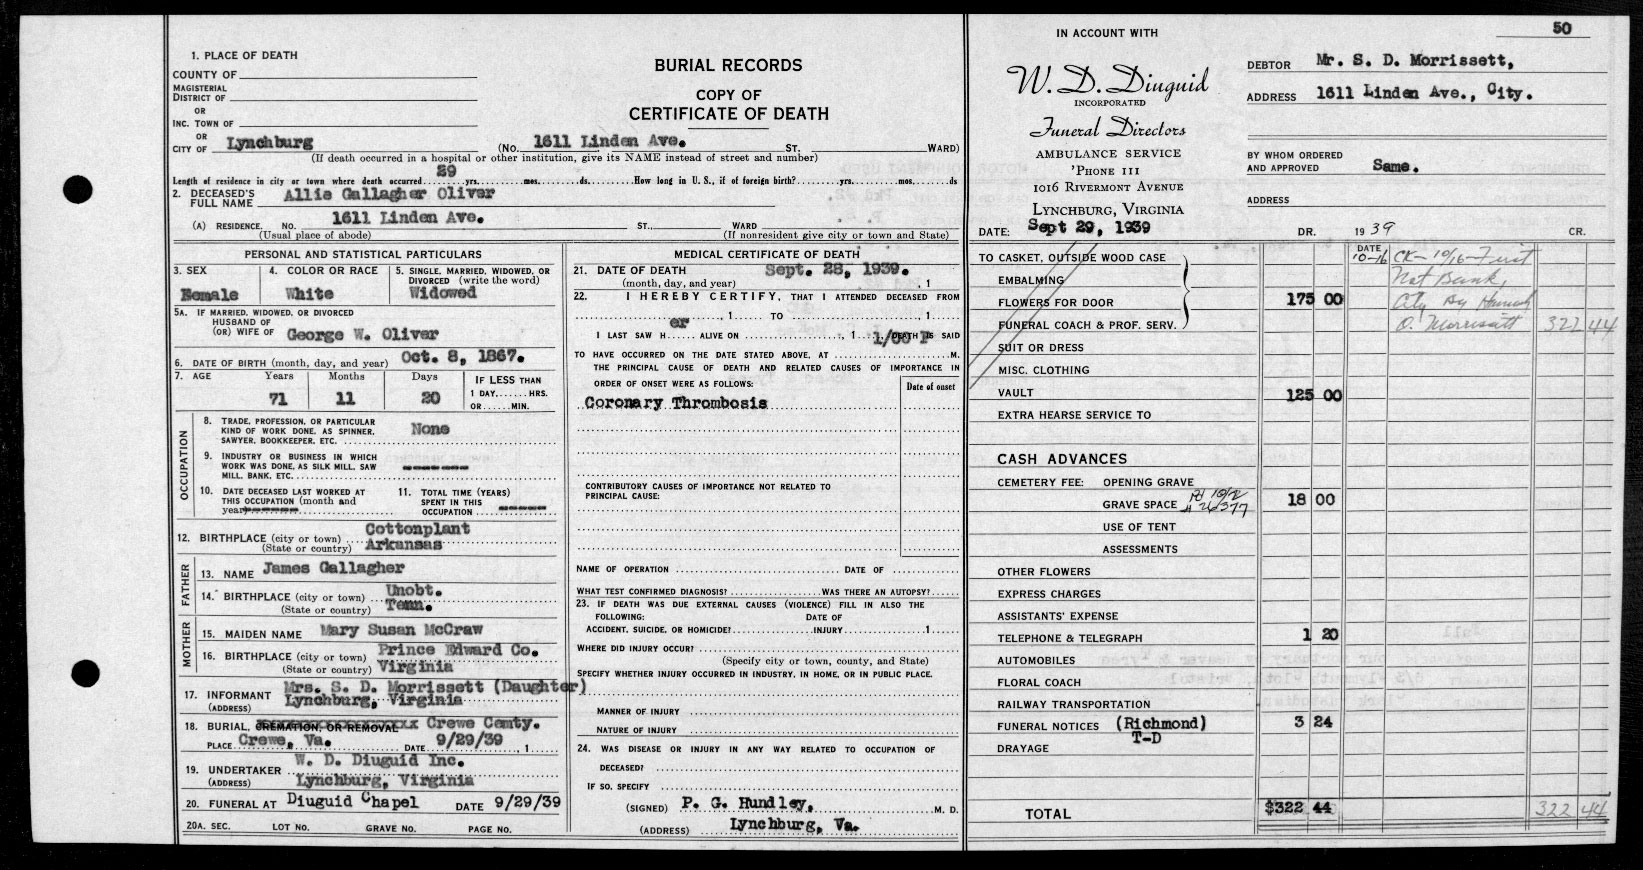 1. PLACE OF DEATH
COUNTY OF
MAGISTERIAL
DISTRICT OF
OR
INC. TOWN OF
OR
CITY OF Lynchburg (No. 1611 Linden Ave. ST. WARD)
BURIAL RECORDS
COPY OF
CERTIFICATE OF DEATH
(If death occurred in a hospital or other institution, give its NAME instead of street and number)
Length of residence in city or town where death occurred 29 yrs. mos. ds. How long in U. S., if of foreign birth? yrs. mos. ds
2. DECEASED'S
FULL NAME Allie Gallagher Oliver
(A) RESIDENCE. NO. 1611 Linden Ave. ST., WARD
(Usual place of abode) (If nonresident give city or town and State)
PERSONAL AND STATISTICAL PARTICULARS
3. SEX Female
4. COLOR OR RACE White
5. SINGLE, MARRIED, WIDOWED, OR
DIVORCED (write the word)
Widowed
5A. IF MARRIED, WIDOWED, OR DIVORCED
HUSBAND OF
(OR) WIFE OF George W. Oliver
6. DATE OF BIRTH (month, day, and year) Oct. 8, 1867.
7. AGE Years Months Days IF LESS THAN
71 11 20 1 DAY HRS.
OR MIN.
OCCUPATION
8. TRADE, PROFESSION, OR PARTICULAR
KIND OF WORK DONE, AS SPINNER,
SAWYER, BOOKKEEPER, ETC. None
9. INDUSTRY OR BUSINESS IN WHICH
WORK WAS DONE, AS SILK MILL, SAW
MILL, BANK, ETC. ------
10. DATE DECEASED LAST WORKED AT
THIS OCCUPATION (month and
year) -----
11. TOTAL TIME (YEARS)
SPENT IN THIS
OCCUPATION -----
12. BIRTHPLACE (city or town) Cottonplant
(State or country) Arkansas
FATHER
13. NAME James Gallagher
14. BIRTHPLACE (city or town) Unobt.
(State or country) Tenn.
MOTHER
15. MAIDEN NAME Mary Susan McCraw
16. BIRTHPLACE (city or town) Prince Edward Co.
(State or country) Virginia
17. INFORMANT Mrs. S. D. Morrissett (Daughter)
(ADDRESS) Lynchburg, Virginia
18. BURIAL, CREMATION, OR REMOVAL Crewe Cemty.
PLACE Crewe, Va. DATE 9/29/39, 1
19. UNDERTAKER W. D. Diuguid Inc.
(ADDRESS) Lynchburg, Virginia
20. FUNERAL AT Diuguid Chapel DATE 9/29/39
20A. SEC. LOT NO. GRAVE NO. PAGE NO.
MEDICAL CERTIFICATE OF DEATH
21. DATE OF DEATH Sept. 28, 1939.
(month, day, and year) , 1
22. I HEREBY CERTIFY, THAT I ATTENDED DECEASED FROM
, 1 TO , 1
I LAST SAW H er ALIVE ON , 1 DEATH IS SAID
TO HAVE OCCURRED ON THE DATE STATED ABOVE, AT M.
THE PRINCIPAL CAUSE OF DEATH AND RELATED CAUSES OF IMPORTANCE IN
ORDER OF ONSET WERE AS FOLLOWS: Date of onset
Coronary Thrombosis
CONTRIBUTORY CAUSES OF IMPORTANCE NOT RELATED TO
PRINCIPAL CAUSE:
NAME OF OPERATION DATE OF
WHAT TEST CONFIRMED DIAGNOSIS? WAS THERE AN AUTOPSY?
23. IF DEATH WAS DUE EXTERNAL CAUSES (VIOLENCE) FILL IN ALSO THE
FOLLOWING: DATE OF
ACCIDENT, SUICIDE, OR HOMICIDE? INJURY 1
WHERE DID INJURY OCCUR?
(Specify city or town, county, and State)
SPECIFY WHETHER INJURY OCCURRED IN INDUSTRY, IN HOME, OR IN PUBLIC PLACE.
MANNER OF INJURY
NATURE OF INJURY
24. WAS DISEASE OR INJURY IN ANY WAY RELATED TO OCCUPATION OF
DECEASED?
IF SO, SPECIFY
(SIGNED) P. G. Hundley, M. D.
(ADDRESS) Lynchburg, Va.
50
IN ACCOUNT WITH
W. D. Diuguid
INCORPORATED
Funeral Directors
AMBULANCE SERVICE
'PHONE 111
1016 RIVERMONT AVENUE
LYNCHBURG, VIRGINIA
DEBTOR Mr. S. D. Morrissett,
ADDRESS 1611 Linden Ave., City.
BY WHOM ORDERED
AND APPROVED Same.
ADDRESS
DATE: Sept 29, 1939 DR. 1939 CR.
TO CASKET, OUTSIDE WOOD CASE
EMBALMING
FLOWERS FOR DOOR 175 00
FUNERAL COACH & PROF. SERV.
DATE
10-16 CK- 10/16- First
Nat Bank,
City By Hannah
O. Morrissett 322 44
SUIT OR DRESS
MISC. CLOTHING
VAULT 125 00
EXTRA HEARSE SERVICE TO
CASH ADVANCES
CEMETERY FEE: OPENING GRAVE
GRAVE SPACE Pd 10/2 # 26377 18 00
USE OF TENT
ASSESSMENTS
OTHER FLOWERS
EXPRESS CHARGES
ASSISTANTS' EXPENSE
TELEPHONE & TELEGRAPH 1 20
AUTOMOBILES
FLORAL COACH
RAILWAY TRANSPORTATION
FUNERAL NOTICES (Richmond) 3 24
T-D
DRAYAGE
TOTAL $322 44 322 44